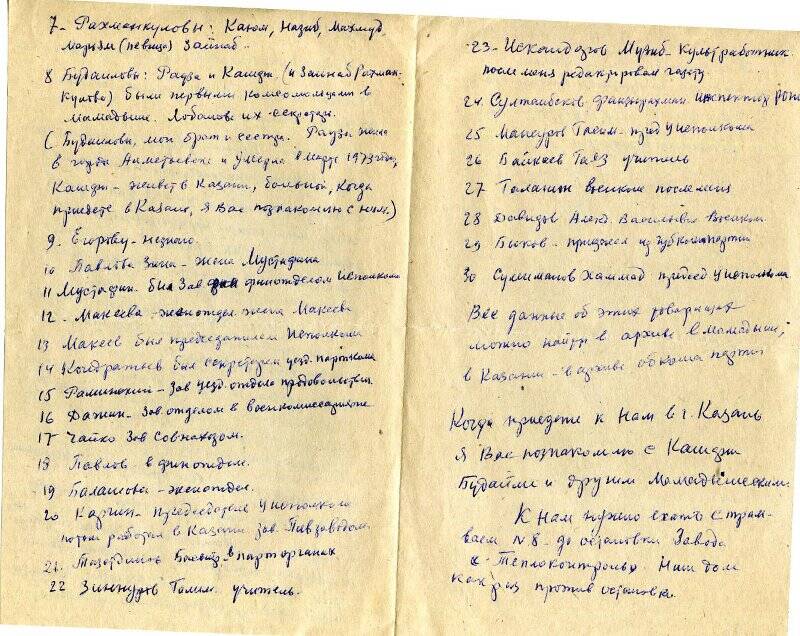 7 - Рахманкуловы: Каюм, Назиб, Махмуд
Марьям (певица) Зайнаб
8 Будаиловы: Рауза и Кашди (и Зайнаб Рахман-
кулова) были первыми комсомольцами в
Мамадыше. Лобанова их секретарь
(Будаиловы, мои брат и сестра. Рауза жила
в городе Альметьевске и умерла в марте 1973 года,
Кашди - живет в Казани, больной, когда
приедете в Казань, я Вас познакомлю с ним.)
9. Егорову - незнаю.
10 Павлова Зина - жена Мустафина
11 Мустафин был Зав финотделом Исполкома
12. Макеева - женотдел жена Макеева
13 Макеев был председателем Исполкома
14 Кондратьев был секретарем уезд. парткома
15 Раминский - Зав уезд. отдела продовольствия
16 Дажин - Зав. отделом в военкомиссариате
17 Чайко Зав Совнархозом.
18 Павлов в финотделе.
19 Балашова - женотдел.
20 Каргин - председатель Уисполкома
потом работал в Казани зав. Пивзаводом
21. в парт органах
22 Зиннуров Галим учитель.
23 - Искандаров Музиб. культработник
после меня редактировал газету
24 Султанбеков инспектор РОНО
25 Мансуров Гасим - пред Уисполкома
26 Байкеев Гаяз учитель
27 Таланин военком после меня
28 Давидов Алекд. Васильевич Военком
29 Быков - приезжал из Губкома партии
30 Сулиманов Хаммад председ Уисполкома
Все данные об этих товарищах
можно найти в архиве в Мамадыше,
в Казани - в архиве обкома партии
Когда приедете к Нам в г. Казань
Я Вас познакомлю с Кашди
Будайли и другим Мамадышским.
К Нам нужно ехать с трам-
ваем N 8 - до остановки Завода
"Теплоконтроль" Наш дом
как раз против остановки.